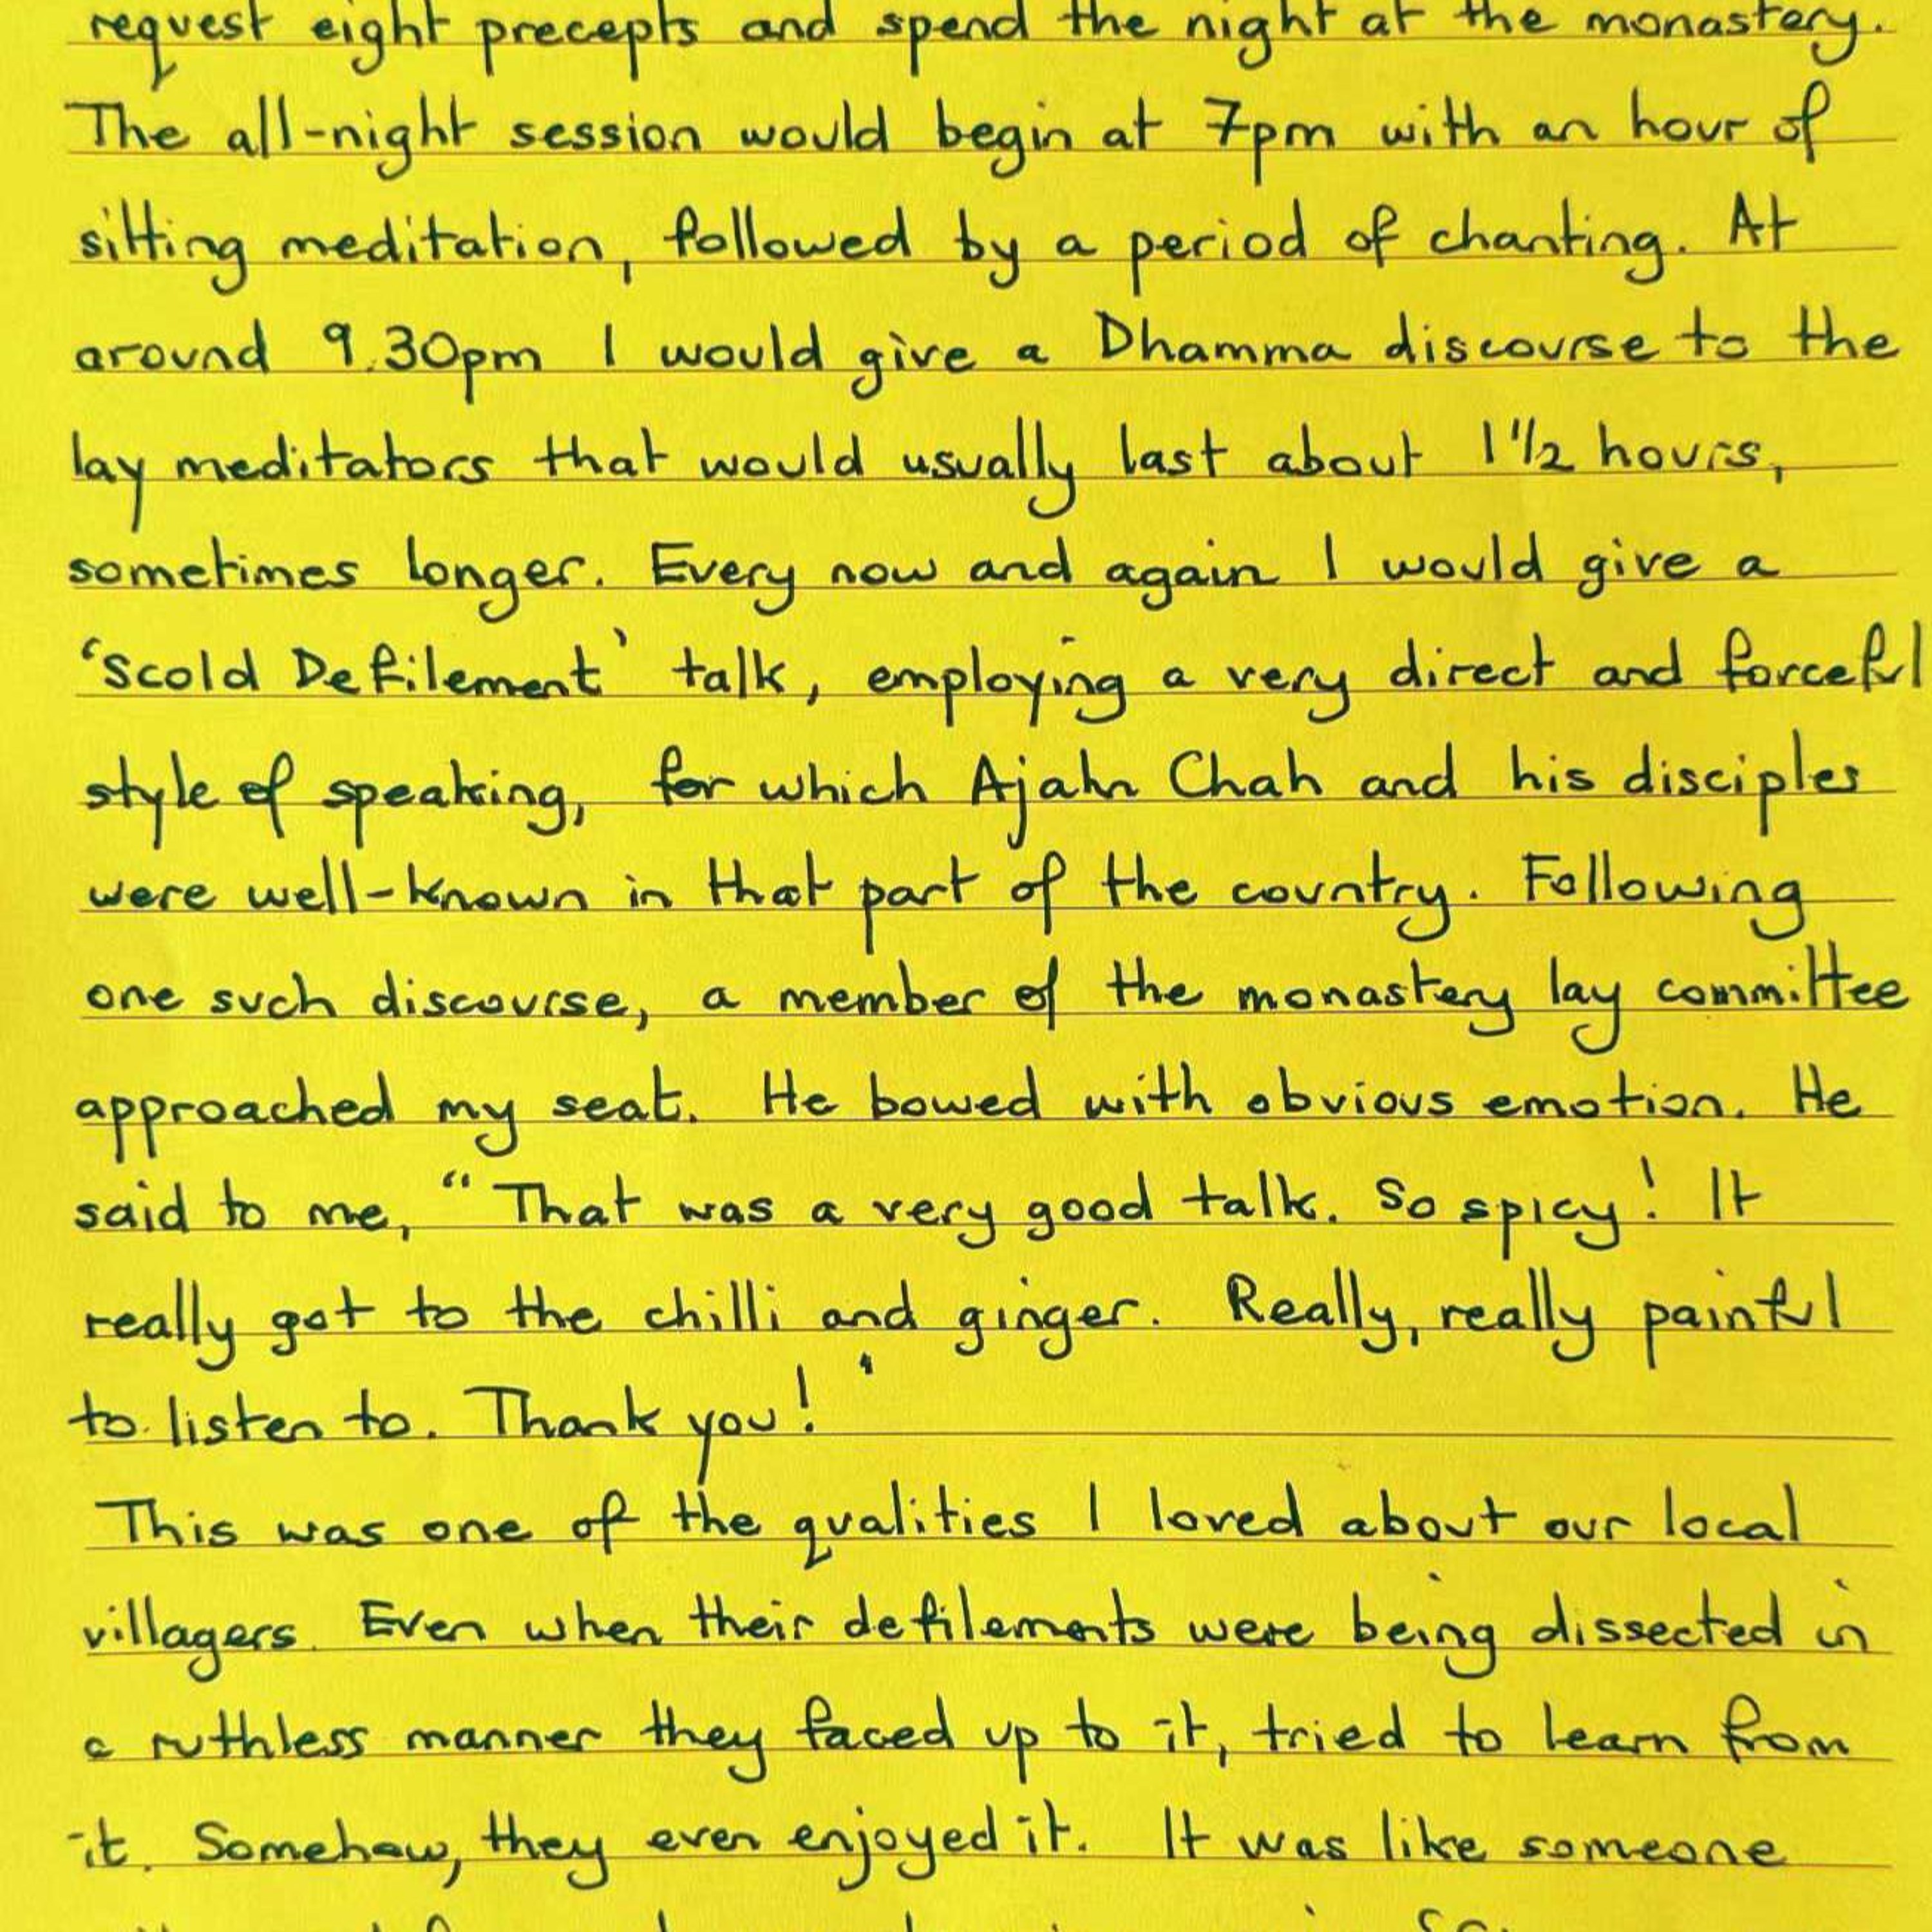 request eight precepts and spend the night at the monastery.
The all-night session would begin at 7pm with an hour of
sitting meditation, followed by a period of chanting. At
around 9.30pm I would give a Dhamma discourse to the
lay meditators that would usually last about 1 1/2 hours,
sometimes longer. Every now and again I would give a
‘Scold Defilement’ talk, employing a very direct and forceful
style of speaking, for which Ajahn Chah and his disciples
were well-known in that part of the country. Following
one such discourse, a member of the monastery lay committee
approached my seat. He bowed with obvious emotion. He
said to me, “That was a very good talk. So spicy! It
really got to the chilli and ginger. Really, really painful
to listen to. Thank you!'
This was one of the qualities I loved about our local
villagers. Even when their defilements were being dissected in
a ruthless manner they faced up to it, tried to learn from
it. Somehow, they even enjoyed it. It was like someone